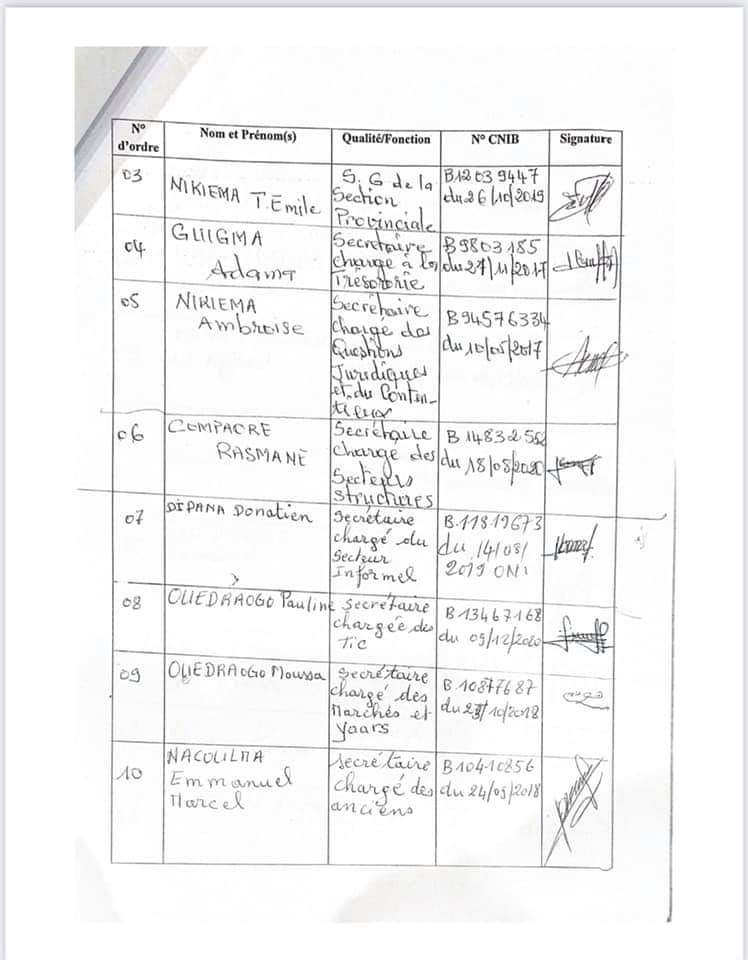 N° d'ordre Nom et Prénom(s) Qualité/Fonction N° CNIB Signature
03 NIKIEMA T. Emile S.G de la Section Provinciale B12039447 du 26/10/2019
04 GUIGMA Adama Secrétaire chargé à la Trésorerie B9803185 du 27/11/2017
05 NIKIEMA Ambroise Secrétaire chargé des Questions Juridiques et du Conten-tieux B94576334 du 10/05/2017
06 COMPAORE RASMANÉ Secrétaire chargé des Secteurs structures B1483255 du 18/08/2020
07 DIPAMA Donatien Secrétaire chargé du Secteur Informel B.11819673 du 14/08/2019 ONI
08 OUEDRAOGO Pauline Secrétaire chargée des Tic B13467168 du 09/12/2020
09 OUEDRAOGO Moussa Secrétaire chargé des Marchés et Yaars B10877687 du 23/10/2018
10 NACOULMA Emmanuel Marcel Secrétaire chargé des anciens B10410856 du 24/05/2018